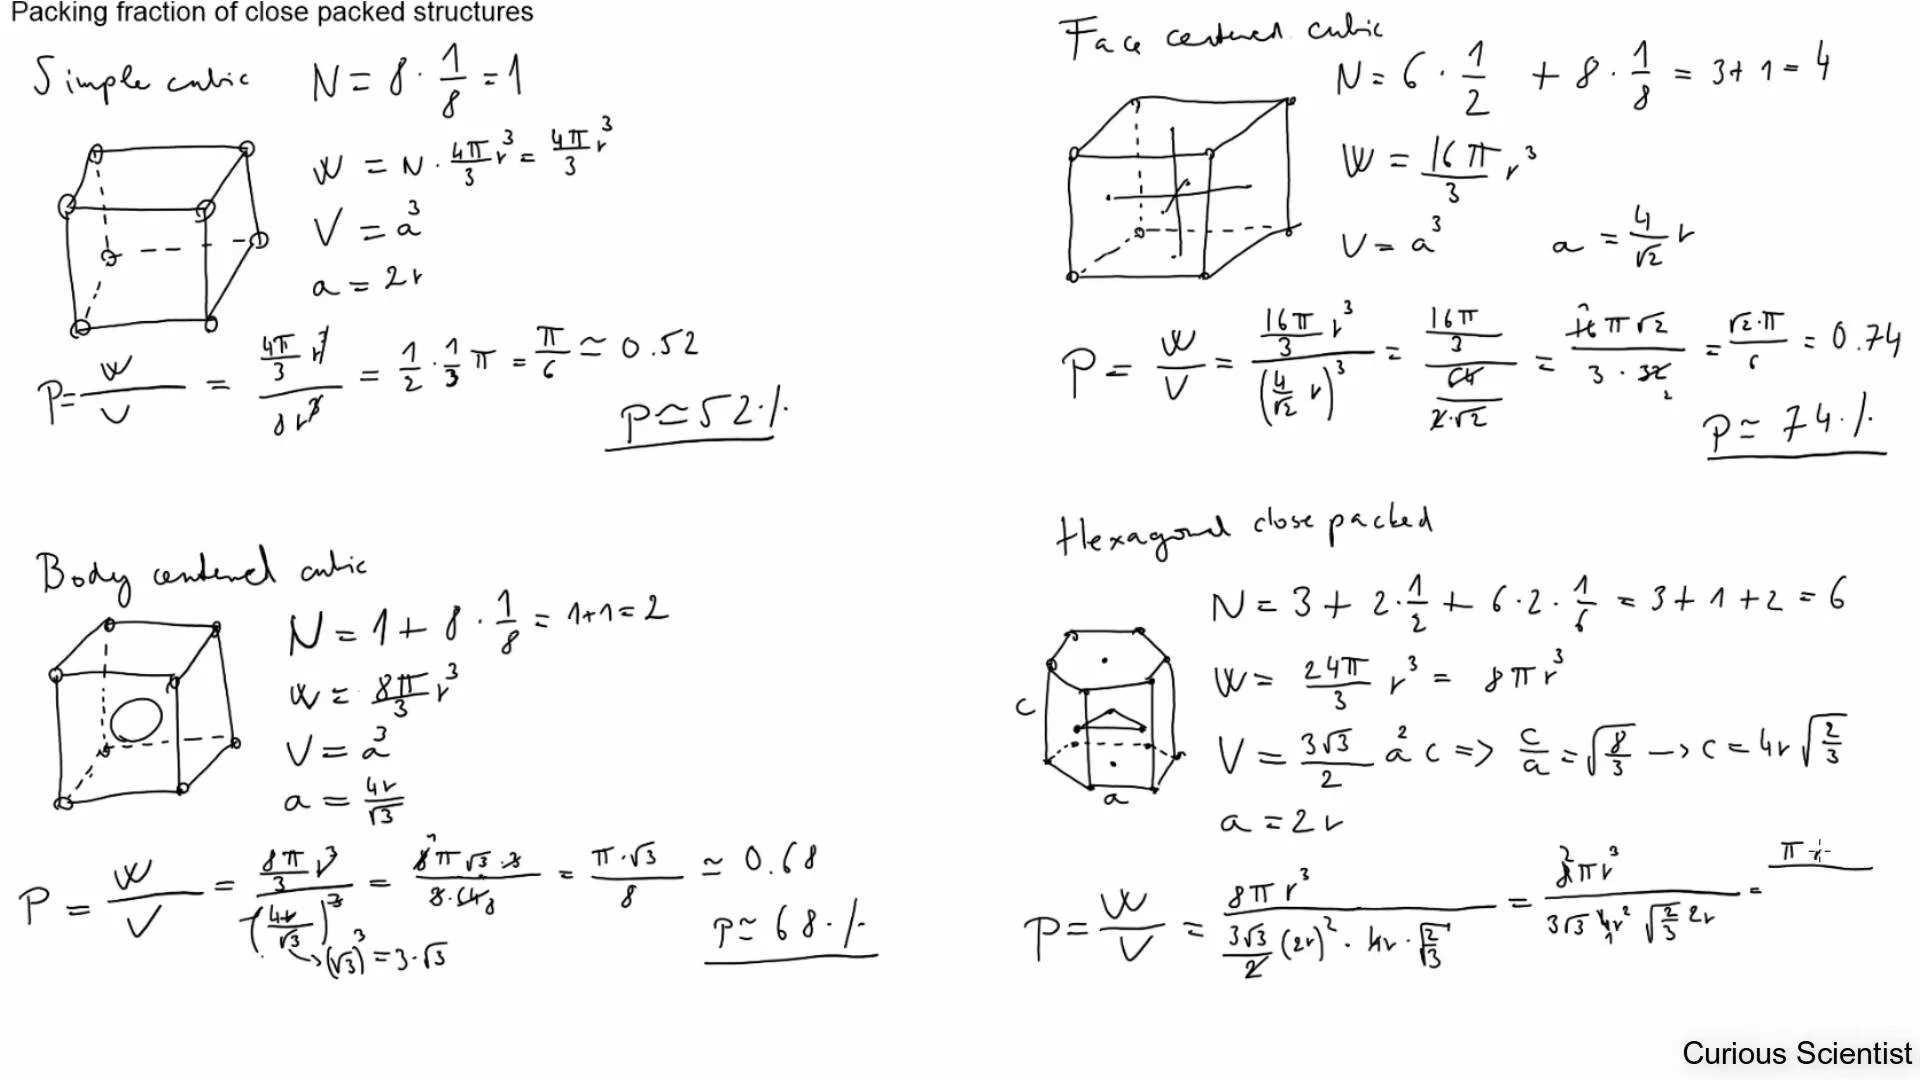 Packing fraction of close packed structures
Simple cubic N = 8 · 1/8 = 1
W = N · 4π/3 r³ = 4π/3 r³
V = a³
a = 2r
P = W/V = (4π/3 r³)/(8r³) = 1/2 · 1/3 π = π/6 ≃ 0.52
P ≃ 52 %
Body centered cubic
N = 1 + 8 · 1/8 = 1+1 = 2
W = 8π/3 r³
V = a³
a = 4r/√3
P = W/V = (8π/3 r³)/(4r/√3)³ = (8π√3·3)/(3·64) = π·√3/8 ≃ 0.68
(√3)³ = 3·√3
P ≃ 68 %
Face centered cubic
N = 6 · 1/2 + 8 · 1/8 = 3+1 = 4
W = 16π/3 r³
V = a³ a = 4/√2 r
P = W/V = (16π/3 r³)/(4/√2 r)³ = (16π/3)/(64/(2·√2)) = (16π√2)/(3·32) = √2·π/6 = 0.74
P ≃ 74 %
Hexagonal close packed
N = 3 + 2·1/2 + 6·2·1/6 = 3+1+2 = 6
W = 24π/3 r³ = 8πr³
c
V = 3√3/2 a²c => c/a = √(8/3) → c = 4r√(2/3)
a
a = 2r
P = W/V = (8πr³)/(3√3/2 (2r)² · 4r · √(2/3)) = (8πr³)/(3√3 4r² √(2/3) 2r) = π
Curious Scientist